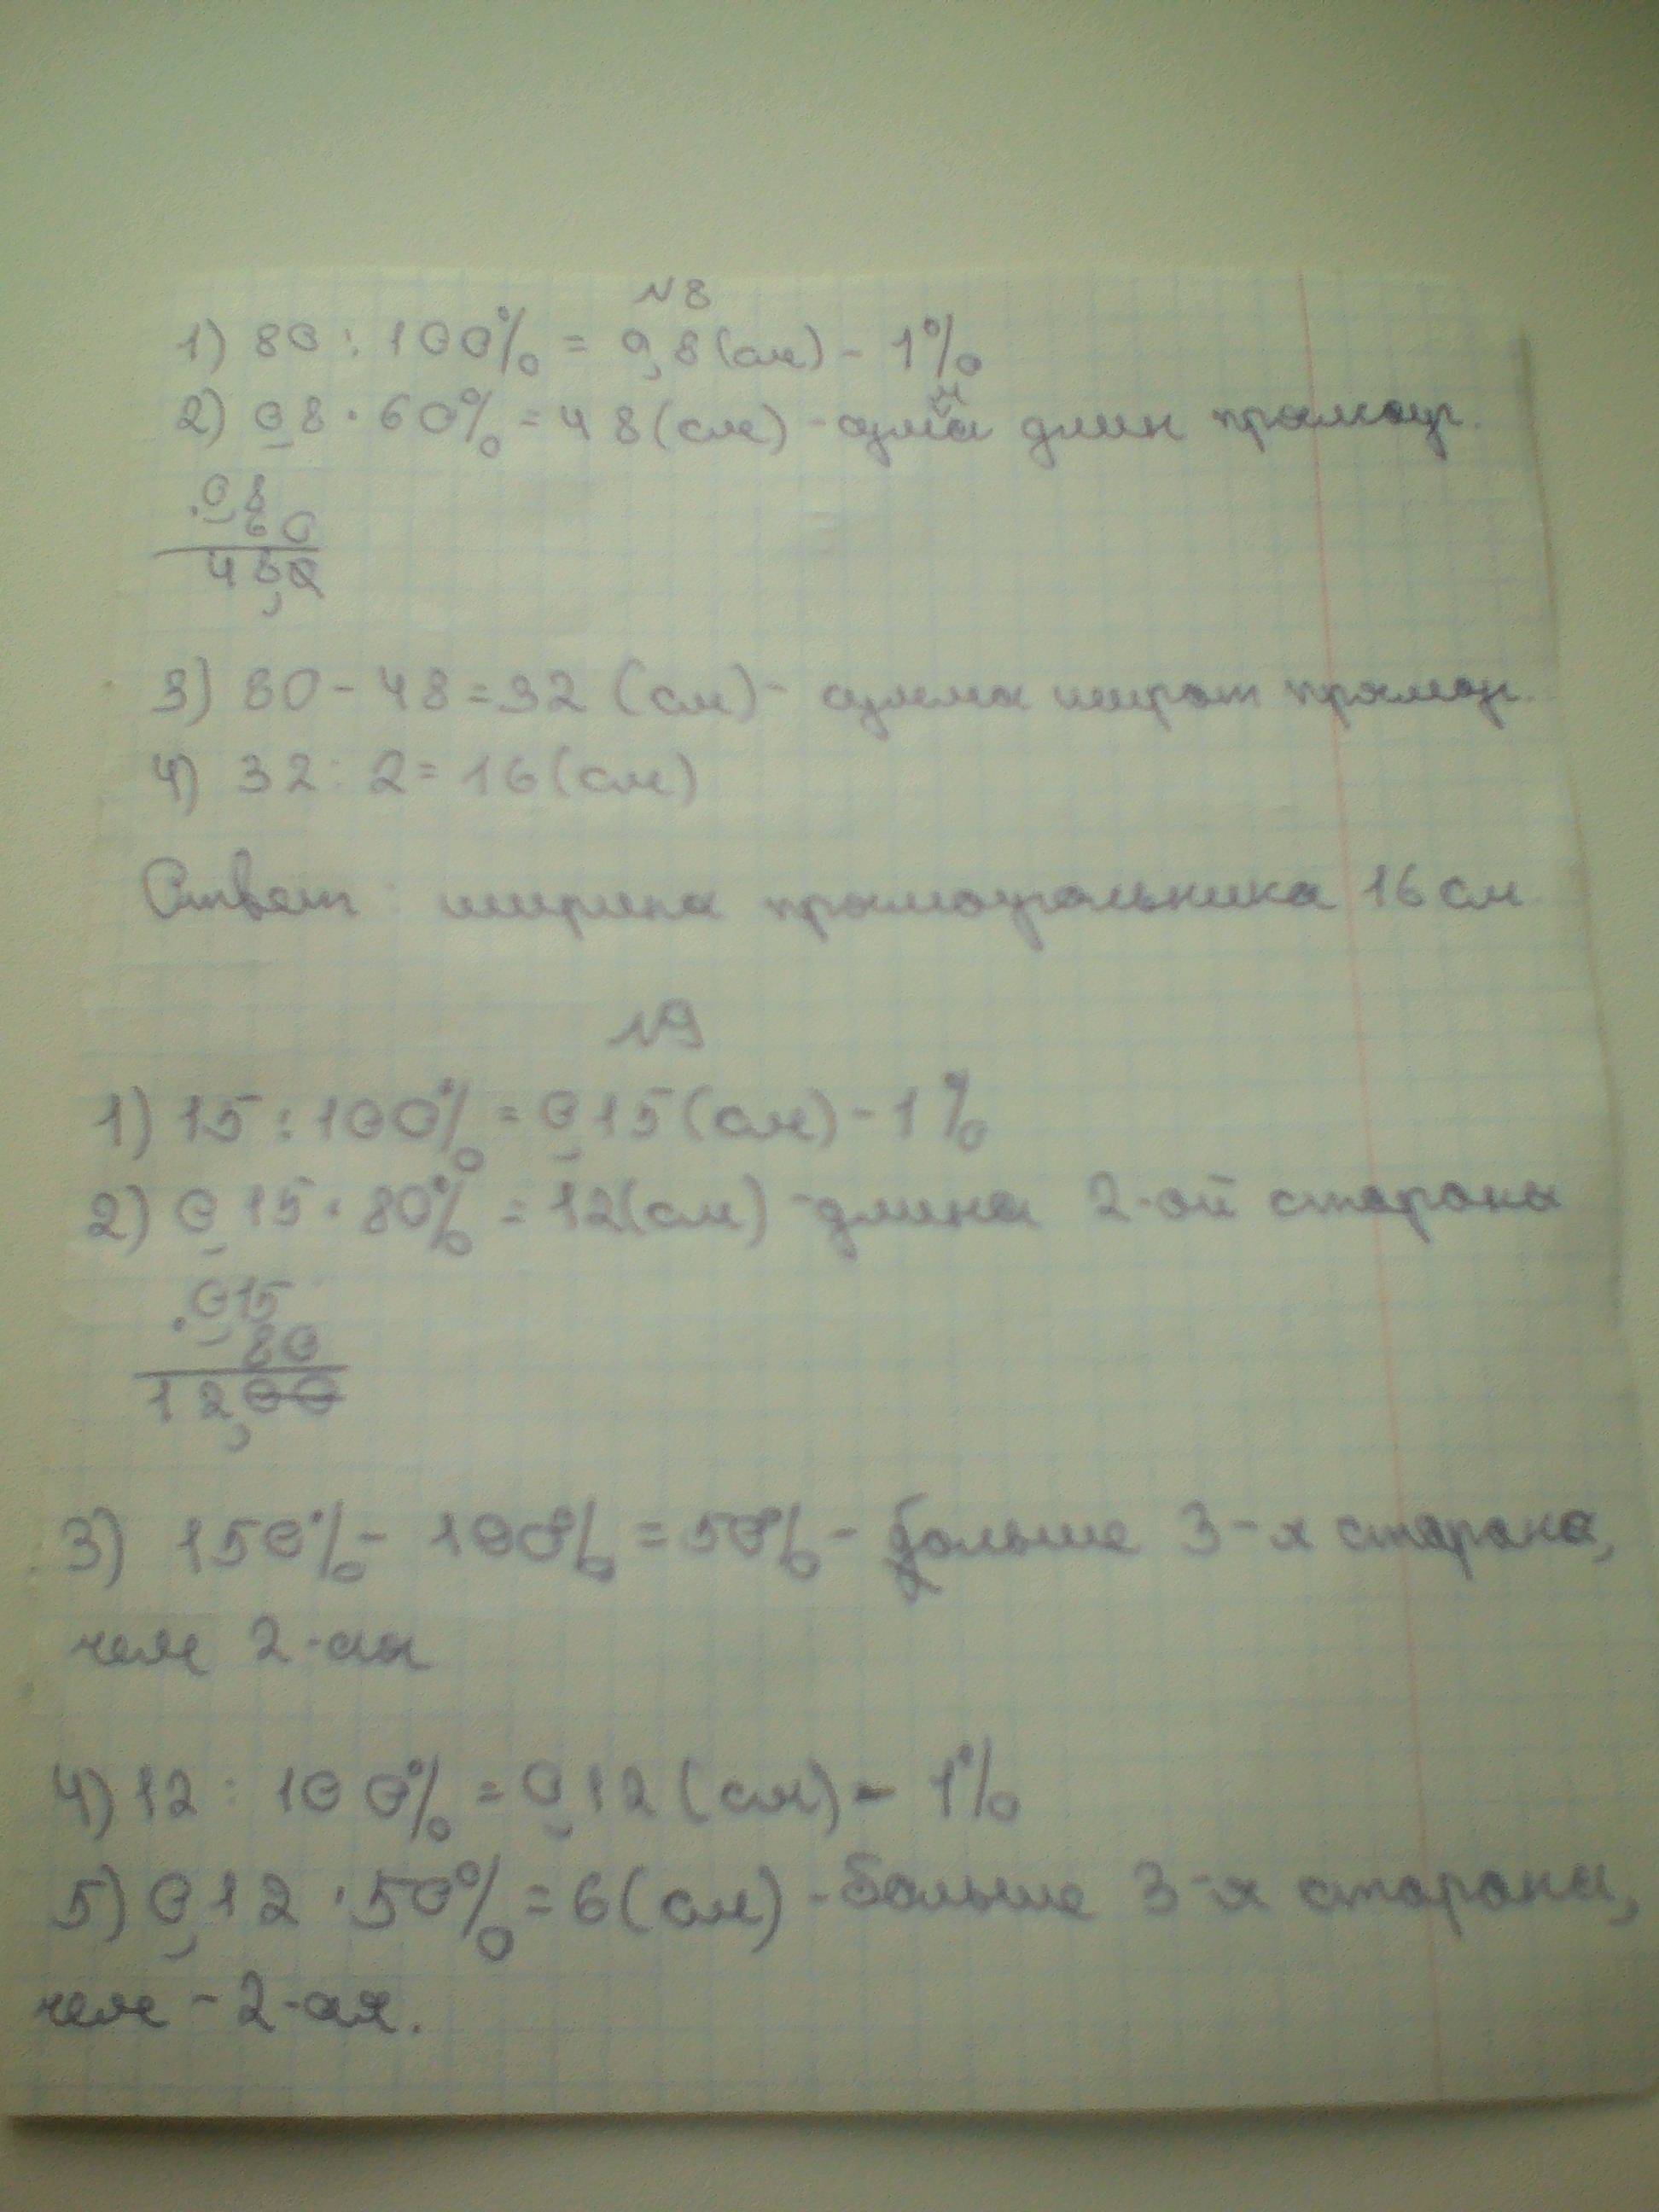 №8
1) 80 : 100% = 0,8 (см) - 1%
2) 0,8 · 60% = 48 (см) - сумма длин прямоуг.
0,8
60
48,0
3) 80 - 48 = 32 (см) - сумма широт прямоуг.
4) 32 : 2 = 16 (см)
Ответ : ширина прямоугольника 16 см
№9
1) 15 : 100% = 0,15 (см) - 1%
2) 0,15 · 80% = 12 (см) - длина 2-ой стороны
0,15
80
12,00
3) 150% - 100% = 50% - больше 3-я сторона,
чем 2-ая
4) 12 : 100% = 0,12 (см) - 1%
5) 0,12 · 50% = 6 (см) - больше 3-я сторона,
чем - 2-ая.